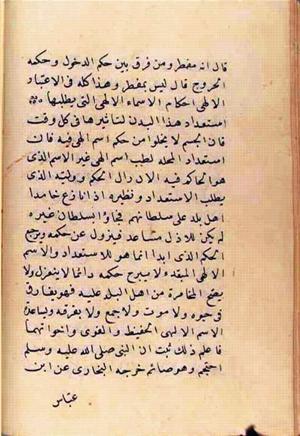 قال انه مفطر ومن فرق بين حكم الدخول وحكم
الخروج قال ليس بمفطر وهذا كله فى الاعتبار
الالهى احكام الاسماء الالهى التى يطلبها
استعداد هذا البدن لتأثيرها فى كل وقت
فان الجسم لا يخلو من حكم اسم الهى فيه فان
استعداد المحل لطلب اسم الهى غير الاسم الذى
هو الحاكم فيه الان زال الحكم ووليه الذى
يطلب الاستعداد ونظيره اذا نازع خامدا
اهل بلد على سلطانهم فجاؤا بسلطان غيره
لم يكن للاول مساعد فيزول عن حكمه ويرجع
الحكم الذى ابدا انما هو للاستعداد والاسم
الالهى المبقد لا يبرح حكمه دائما لا ينعزل ولا
يصح المخامرة من اهل البلد عليه فهو يفارق
فى حيوه ولا موت ولا جمع ولا بفرقه ويساعده
الاسم الالهى الحفيظ والقوى واخواتهما
فاعلم ذلك ثبت ان النبى صلى الله عليه وسلم
احتجم وهو صائم خرجه البخارى عن ابن
عباس